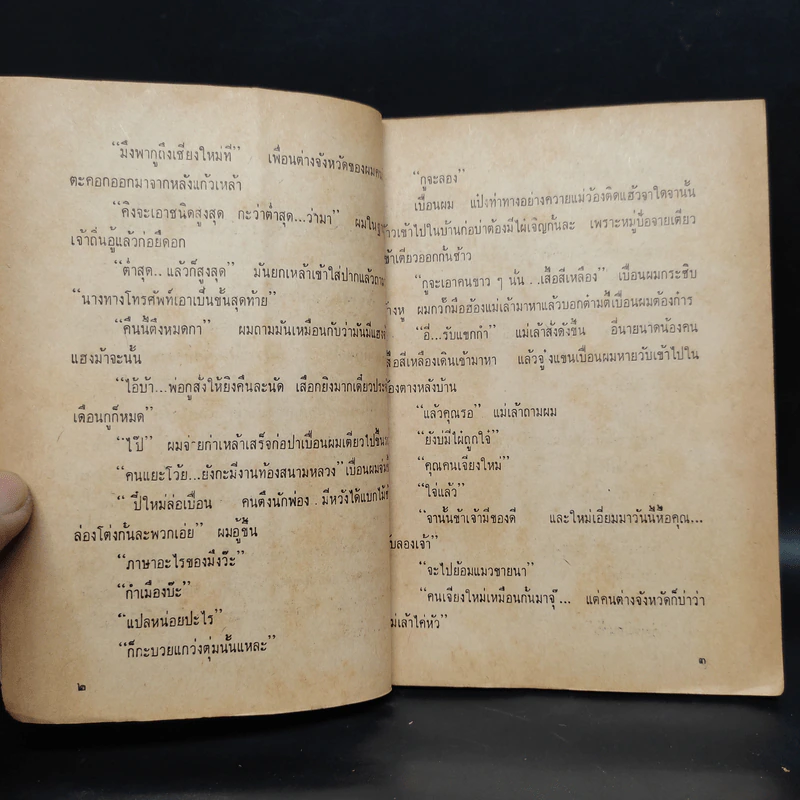 “มึงพากูถึงเชียงใหม่ที” เพื่อนต่างจังหวัดของผม
ตะคอกออกมาจากหลังแก้วเหล้า
“คิงจะเอาชนิดสูงสุด กะว่าต่ำสุด...ว่ามา” ผมใน
เจ้าถิ่นอู้แล้วก่อยืดอก
“ต่ำสุด.. แล้วก็สูงสุด” มันยกเหล้าเข้าใส่ปากแล้ว
“นางทางโทรศัพท์เอาเป็นขั้นสุดท้าย”
“คืนนี้ตึงหมดกา” ผมถามมันเหมือนกับว่ามันมีแฮง
แฮงม้าจะนั้น
“ไอ้บ้า...พ่อกูสั่งให้ยิงคืนละนัด เสือกยิงมากเดี๋ยว
เดือนกูก็หมด”
“ไป๊” ผมจ่ายก่าเหล้าเสร็จก่อปาเปื่อนผมเตียวไปขึ้น
“คนแยะโว้ย...ยังกะมีงานท้องสนามหลวง” เปื่อนผม
“ปี๋ใหม่ล่อเปื่อน คนตึงนักพ่อง . มีหวังได้แบกไม้
ล่องโต่งกั้นละพวกเอ่ย” ผมอู้ขึ้น
“ภาษาอะไรของมึงวะ”
“กำเมืองบ๊ะ”
“แปลหน่อยปะไร”
“ก็กะบวยแกว่งตุ่มนั้นแหละ”
๒
“กูจะลอง”
เปื่อนผม แป๋งท่าทางอย่างควายแม่ว้องติดแฮ้วจาใดจานั้น
เข้าไปในบ้านก่อบ่าต้องมีไผ่เจิญกั้นละ เพราะหมู่บ่อจายเตียว
เข้าเตียวออกกันซ้าว
“กูจะเอาคนขาว ๆ นั้น . .เสื้อสีเหลือง” เปื่อนผมกระซิบ
ข้างหู ผมกวั๊กมือฮ้องแม่เล้ามาหาแล้วบอกตามตี้เปื่อนผมต้องก๋าร
“อี่...รับแขกกำ” แม่เล้าสั่งดังขึ้น อี่นายนาดน้องคน
เสื้อสีเหลืองเดินเข้ามาหา แล้วจู๋งแขนเปื่อนผมหายวับเข้าไปใน
ห้องตางหลังบ้าน
“แล้วคุณรอ” แม่เล้าถามผม
“ยังบ่มีไผ่ถูกใจ๋”
“คุณคนเจียงใหม่”
“ใจ่แล้ว”
“จานั้นข้าเจ้ามีของดี และใหม่เอี่ยมมาวันนี้หื้อคุณ...
ลองเจ้า”
“จะไปย้อมแมวขายนา”
“คนเจียงใหม่เหมือนกันมาจุ๊... แต่คนต่างจังหวัดก็บ่าว่า
แม่เล้าไค่หัว”
๓